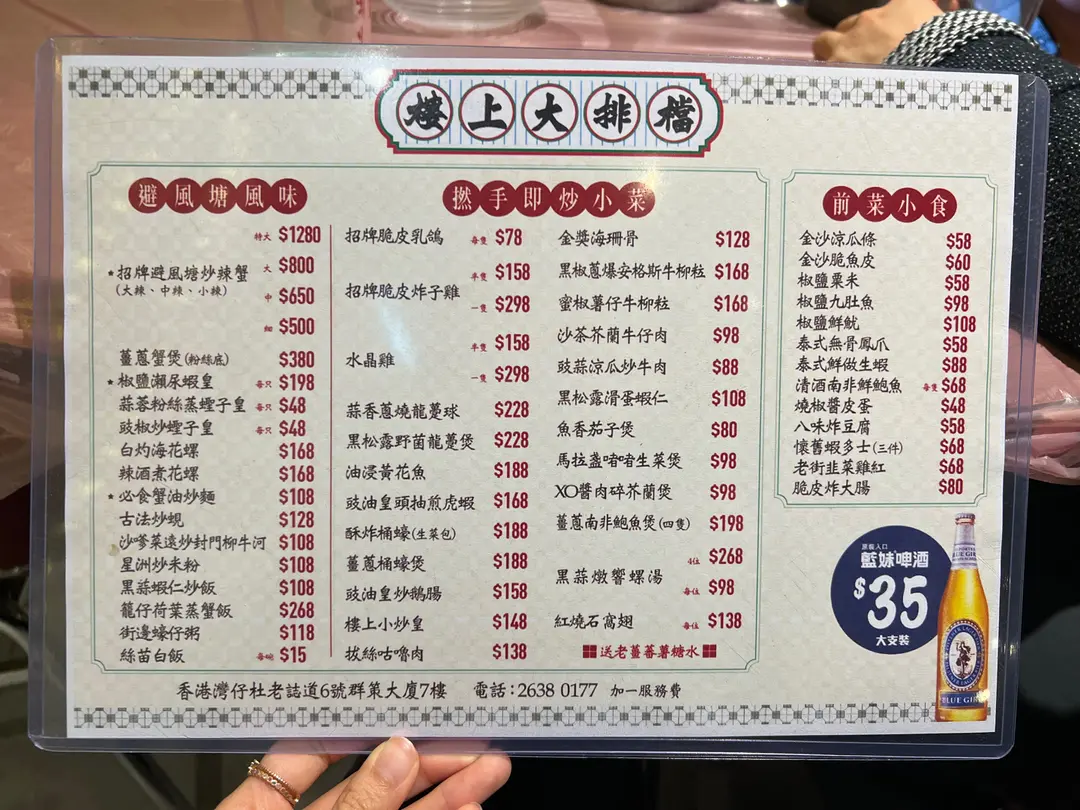 樓上大排檔
避風塘風味
特大 $1280
*招牌避風塘炒辣蟹 大 $800
(大辣、中辣、小辣)
中 $650
細 $500
薑蔥蟹煲(粉絲底) $380
*椒鹽瀨尿蝦皇 每只 $198
蒜蓉粉絲蒸蟶子皇 每只 $48
豉椒炒蟶子皇 每只 $48
白灼海花螺 $168
辣酒煮花螺 $168
*必食蟹油炒麵 $108
古法炒蜆 $128
沙嗲菜遠炒封門柳牛河 $108
星洲炒米粉 $108
黑蒜蝦仁炒飯 $108
籠仔荷葉蒸蟹飯 $268
街邊蠔仔粥 $118
絲苗白飯 每碗 $15
撚手即炒小菜
招牌脆皮乳鴿 每隻 $78
招牌脆皮炸子雞 半隻 $158
一隻 $298
水晶雞 半隻 $158
一隻 $298
蒜香蔥燒龍躉球 $228
黑松露野菌龍躉煲 $228
油浸黃花魚 $188
豉油皇頭抽煎虎蝦 $168
酥炸桶蠔(生菜包) $188
薑蔥桶蠔煲 $188
豉油皇炒鵝腸 $158
樓上小炒皇 $148
拔絲咕嚕肉 $138
金獎海珊骨 $128
黑椒蔥爆安格斯牛柳粒 $168
蜜椒薯仔牛柳粒 $168
沙茶芥蘭牛仔肉 $98
豉蒜涼瓜炒牛肉 $88
黑松露滑蛋蝦仁 $108
魚香茄子煲 $80
馬拉盞啫啫生菜煲 $98
XO醬肉碎芥蘭煲 $98
薑蔥南非鮑魚煲(四隻) $198
黑蒜燉響螺湯 4位 $268
每位 $98
紅燒石窩翅 每位 $138
送老薑蕃薯糖水
前菜小食
金沙涼瓜條 $58
金沙脆魚皮 $60
椒鹽粟米 $58
椒鹽九肚魚 $98
椒鹽鮮魷 $108
泰式無骨鳳爪 $58
泰式鮮做生蝦 $88
清酒南非鮮鮑魚 每隻 $68
燒椒醬皮蛋 $48
八味炸豆腐 $58
懷舊蝦多士(三件) $68
老街韭菜雞紅 $68
脆皮炸大腸 $80
原裝入口
藍妹啤酒
$35
大支裝
BLUE GIRL
香港灣仔杜老誌道6號群策大廈7樓 電話:2638 0177 加一服務費